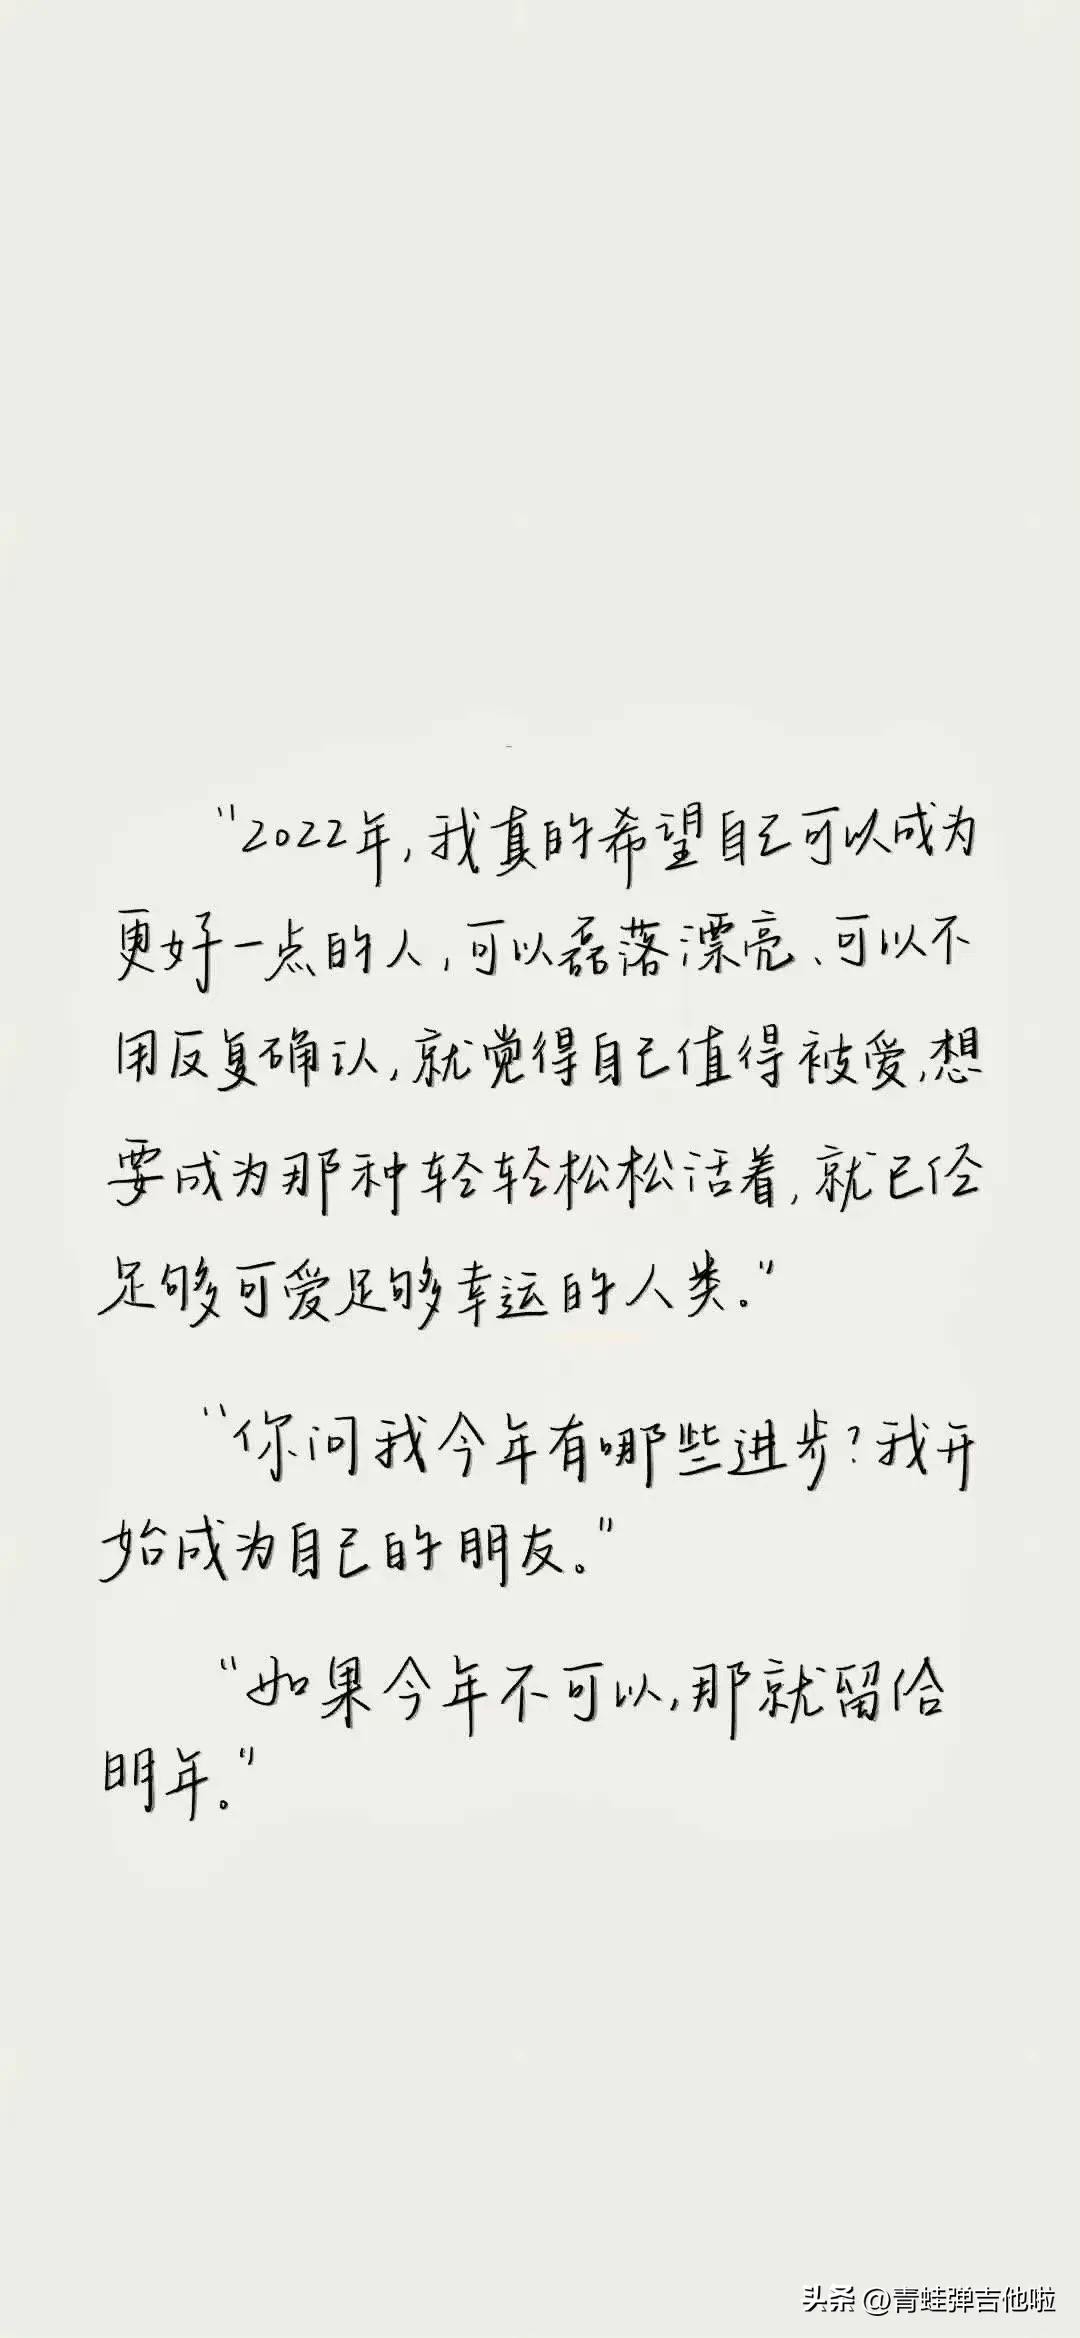 “2022年,我真的希望自己可以成为
更好一点的人,可以磊落漂亮、可以不
用反复确认,就觉得自己值得被爱,想
要成为那种轻轻松松活着,就已经
足够可爱足够幸运的人类。”
“你问我今年有哪些进步?我开
始成为自己的朋友。”
“如果今年不可以,那就留给
明年。”
头条 @青蛙弹吉他啦